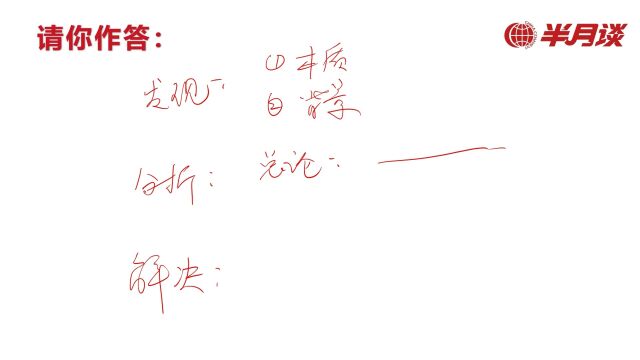 请你作答：
半月谈
发现：
①本质
②背景
分析：
总论：
解决：